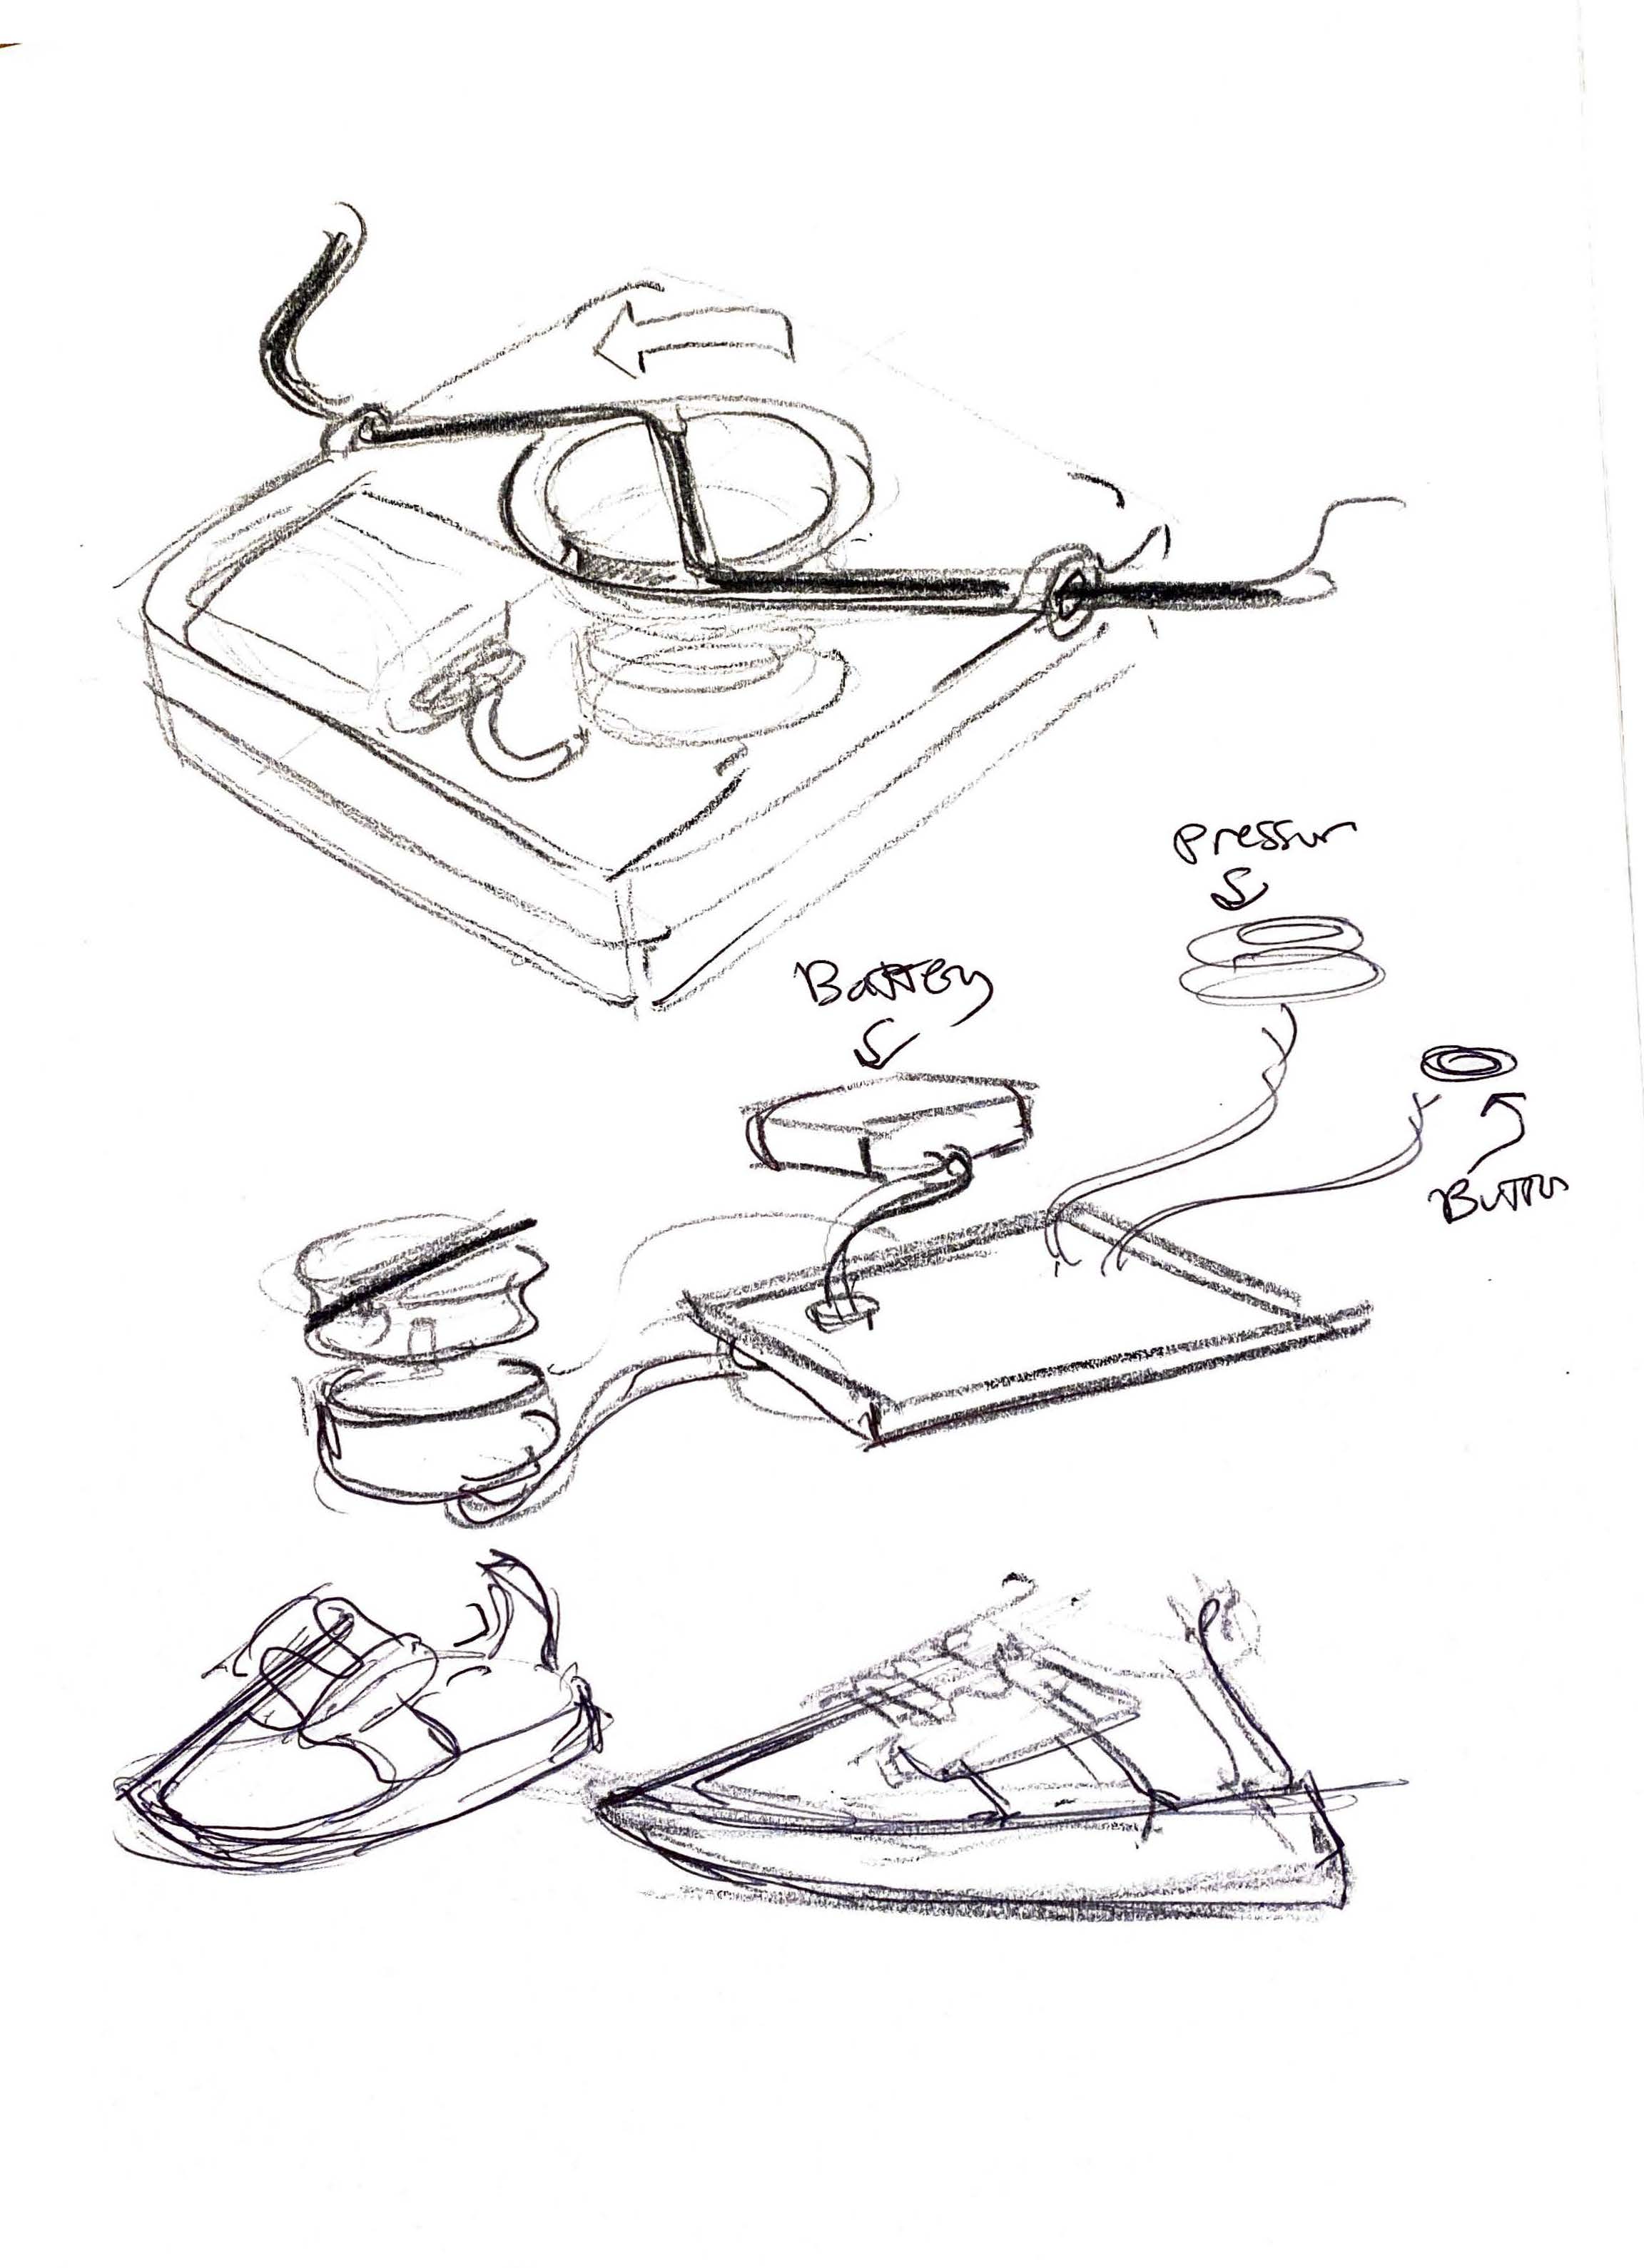 pressur
Battery
Button